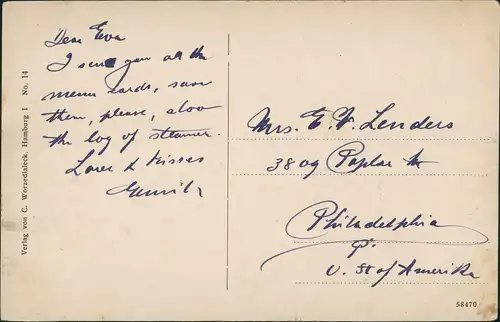 Dear Eva
I send you all the
menu cards, save
them, please, also
the log of steamer.
Love & Kisses
Mrs. E. F. Lenders
3809 Poplar
Philadelphia
Pa
U. St of Amerika
Verlag von C. Worzedialeck, Hamburg I No. 14
58470